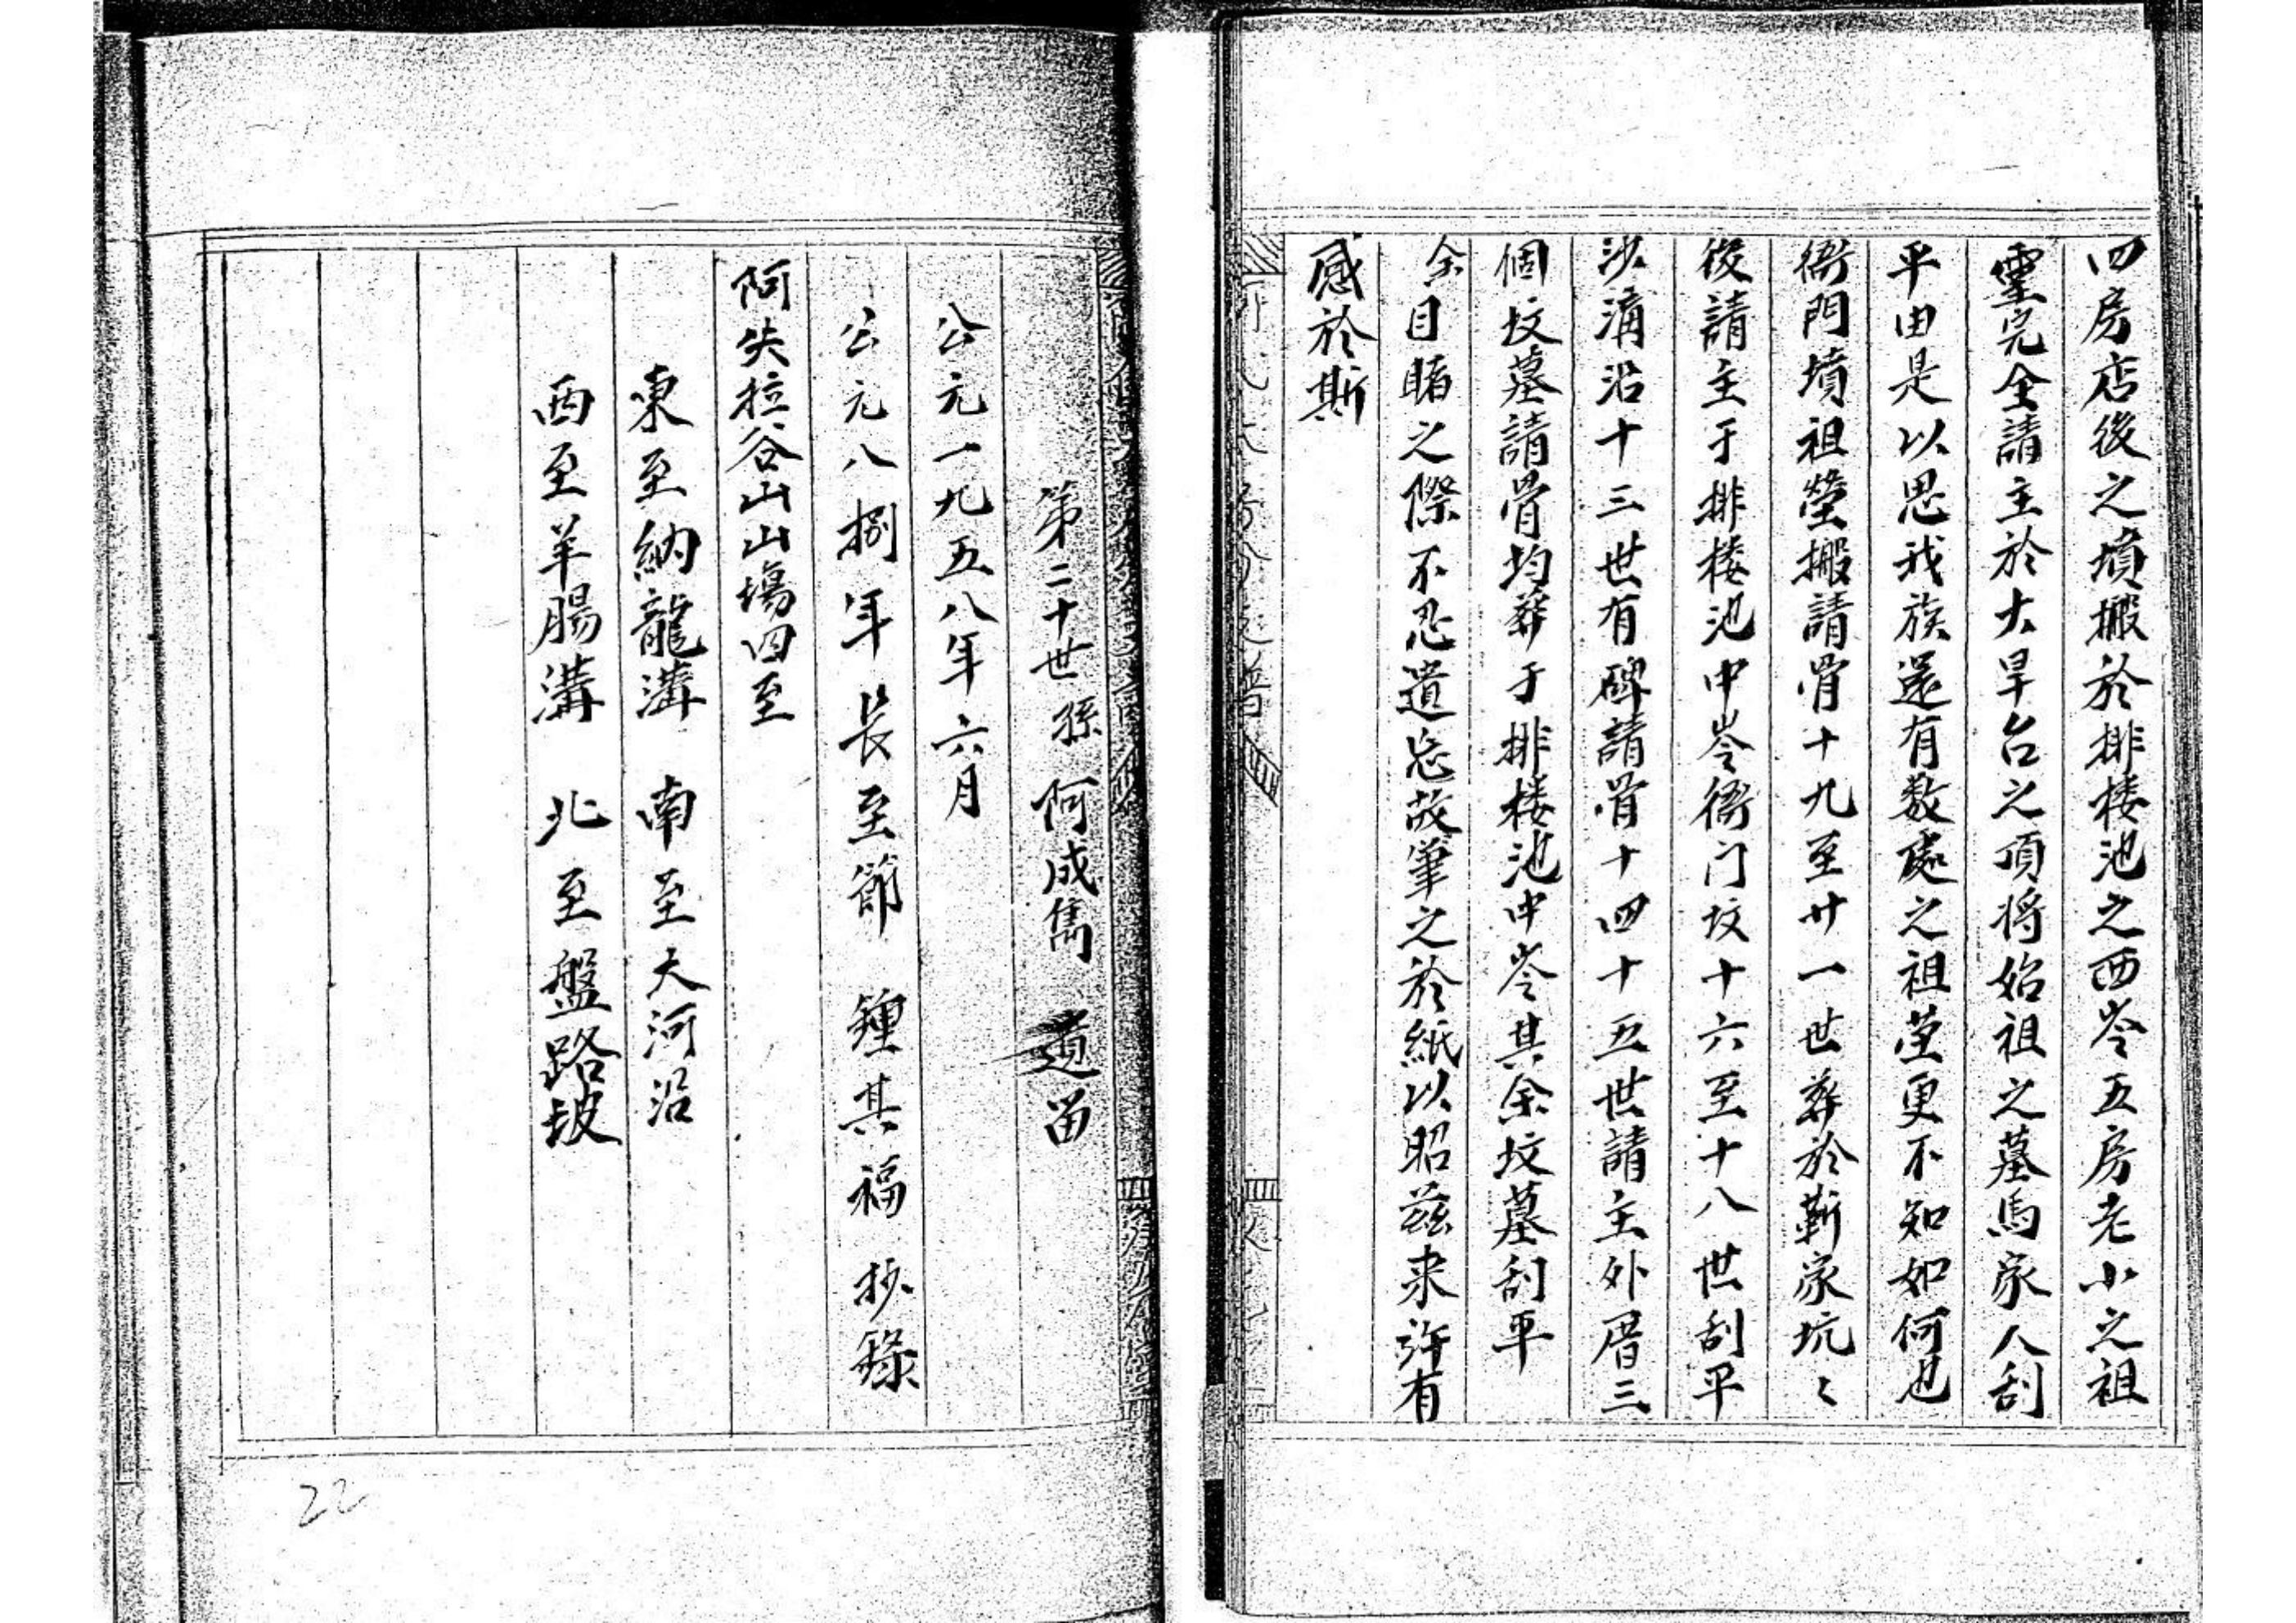 四房店後之墳搬於排楼池之西岺五房老小之祖
靈完全請主於大旱台之頂将始祖之墓馬家人刮
平由是以思我族還有数處之祖茔更不知如何也
衙門墳祖瑩搬請骨十九至廿一世葬於靳家坑〻
後請主于排楼池中岺衙门坟十六至十八世刮平
沙溝沿十三世有碑請骨十四十五世請主外厝三
個坟墓請骨均葬于排楼池中岺其余坟墓刮平
余目睹之際不忍遺忘故筆之於紙以昭兹来許有
感於斯
第二十世孫 何成雋 道 笛
公元一九五八年六月
公元八捌年長至節 鍾其福 抄錄
阿失拉谷山山塲四至
東至納龍溝 南至大河沿
西至羊腸溝 北至盤路坡
22